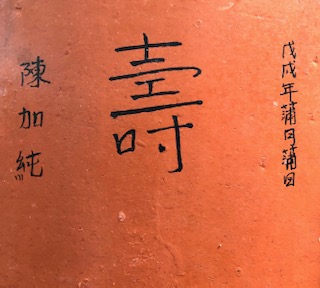 戊戌年蒲日蒲日
壽
陳加純